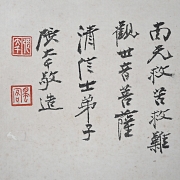 南无救苦救難
觀世音菩薩
清信士弟子
張大千敬造